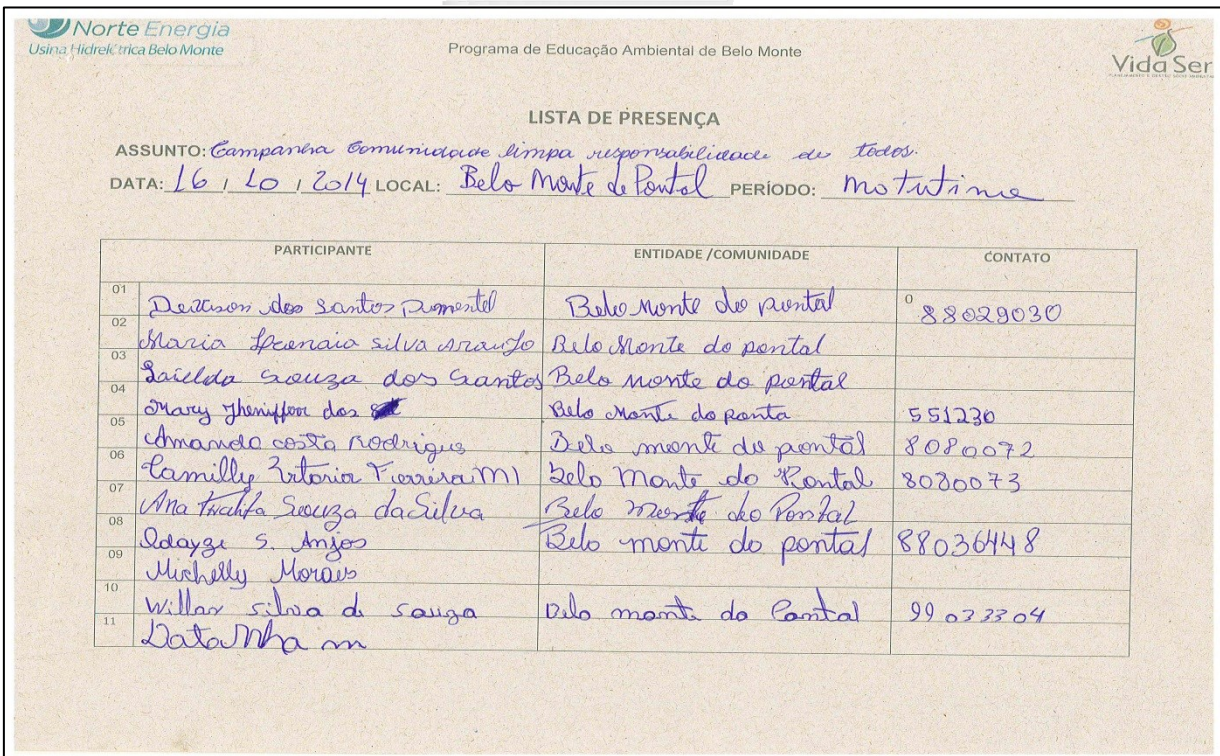 Norte Energia
Usina Hidrelétrica Belo Monte
Programa de Educação Ambiental de Belo Monte
Vida Ser
LISTA DE PRESENÇA
ASSUNTO: Campanha Comunidade limpa responsabilidade de todos.
DATA: 16 / 10 / 2014 LOCAL: Belo Monte de Pontal PERÍODO: motutina
PARTICIPANTE ENTIDADE /COMUNIDADE CONTATO
01 dos Santos Pimentel Belo Monte do pontal 88029030
02 Maria silva Araujo Belo Monte do pontal
03 souza dos Santos Belo Monte do pontal
04 Mary dos Belo Monte do ponta 551230
05 Amanda costa rodrigues Belo monte do pontal 8080072
06 Camilly Vitoria Ferreira M Belo Monte do Pontal 8080073
07 Ana Souza da Silva Belo Monte do Pontal
08 S. Anjos Belo monte do pontal 88036448
09 Michelly Moraes
10 Willar silva de souza Belo monte do Pontal 99033304
11